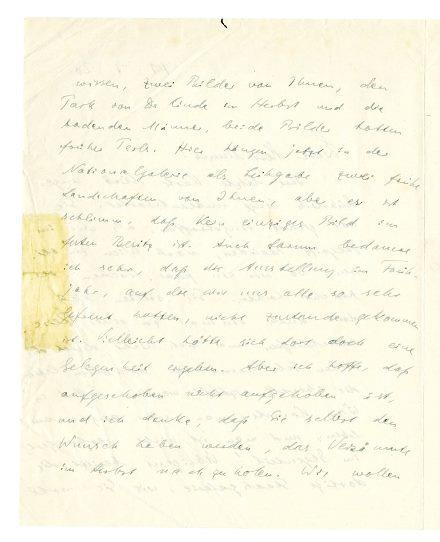 wissen, zwei Bilder von Ihnen, den
Park von Dr. Linde im Herbst und die
badenden Männer, beide Bilder hatten
früher Hier hängen jetzt in der
Nationalgalerie als Leihgabe zwei frühe
Landschaften von Ihnen, aber es ist
schlimm, daß kein einziges Bild im
festen Besitz ist. Auch darum bedauere
ich sehr, daß die Ausstellung im Früh-
jahr, auf die wir uns alle so sehr
gefreut hatten, nicht zustandegekommen
ist. Vielleicht hätte sich dort doch eine
Gelegenheit ergeben. Aber ich hoffe, daß
aufgeschoben nicht aufgehoben ist,
und ich denke, daß Sie selbst den
Wunsch haben werden, das Versäumte
im Herbst nachzuholen. Wir wollen